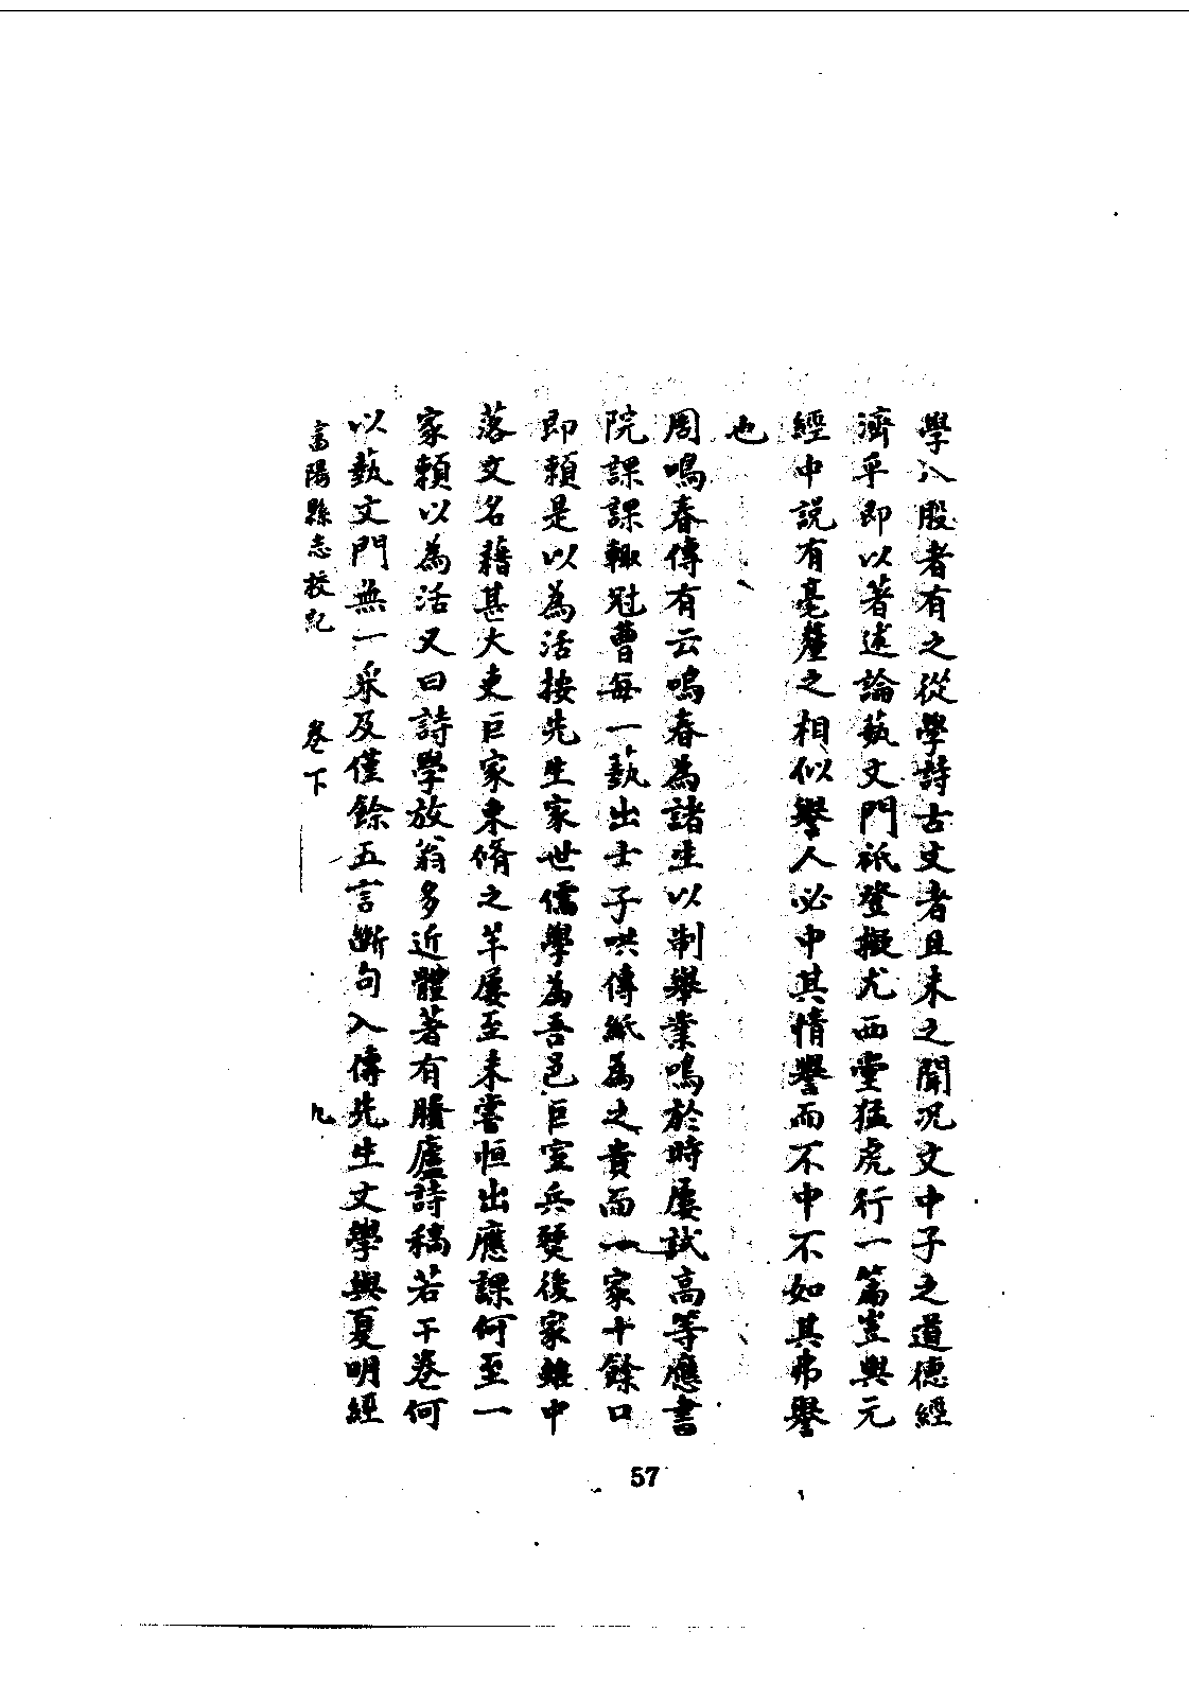 學八股者有之從學詩古文者且未之聞況文中子之道德經
濟乎即以著述論藝文門祇登擬尤西堂猛虎行一篇豈與元
經中説有毫釐之相似譽人必中其情譽而不中不如其弗譽
也
周鳴春傳有云鳴春為諸生以制舉業鳴於時屢試高等應書
院課課輒冠曹每一藝出士子哄傳紙為之貴而一家十餘口
即賴是以為活按先生家世儒學為吾邑巨室兵燹後家雖中
落文名藉甚大吏巨家束脩之羊屢至未嘗恒出應課何至一
家賴以為活又曰詩學放翁多近體著有賸廬詩稿若干卷何
以藝文門無一采及僅餘五言斷句入傳先生文學與夏明經
富陽縣志校記 卷下 九
57